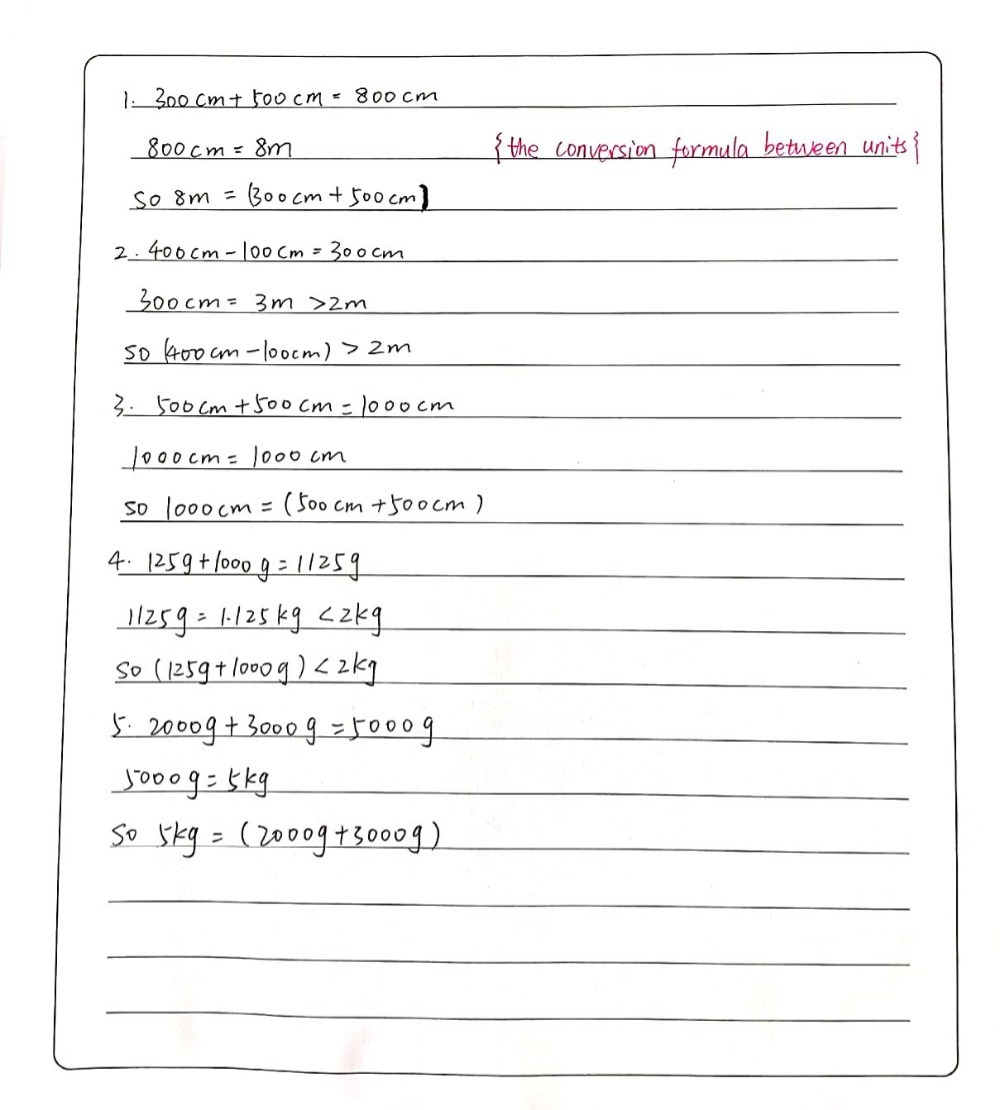 1. 300cm + 500cm = 800cm
800cm = 8m {the conversion formula between units}
so 8m = (300cm + 500cm)
2. 400cm - 100cm = 300cm
300cm = 3m >2m
so (400cm - 100cm) > 2m
3. 500cm + 500cm = 1000cm
1000cm = 1000cm
so 1000cm = (500cm + 500cm)
4. 125g + 1000g = 1125g
1125g = 1.125kg < 2kg
so (125g + 1000g) < 2kg
5. 2000g + 3000g = 5000g
5000g = 5kg
so 5kg = (2000g + 3000g)